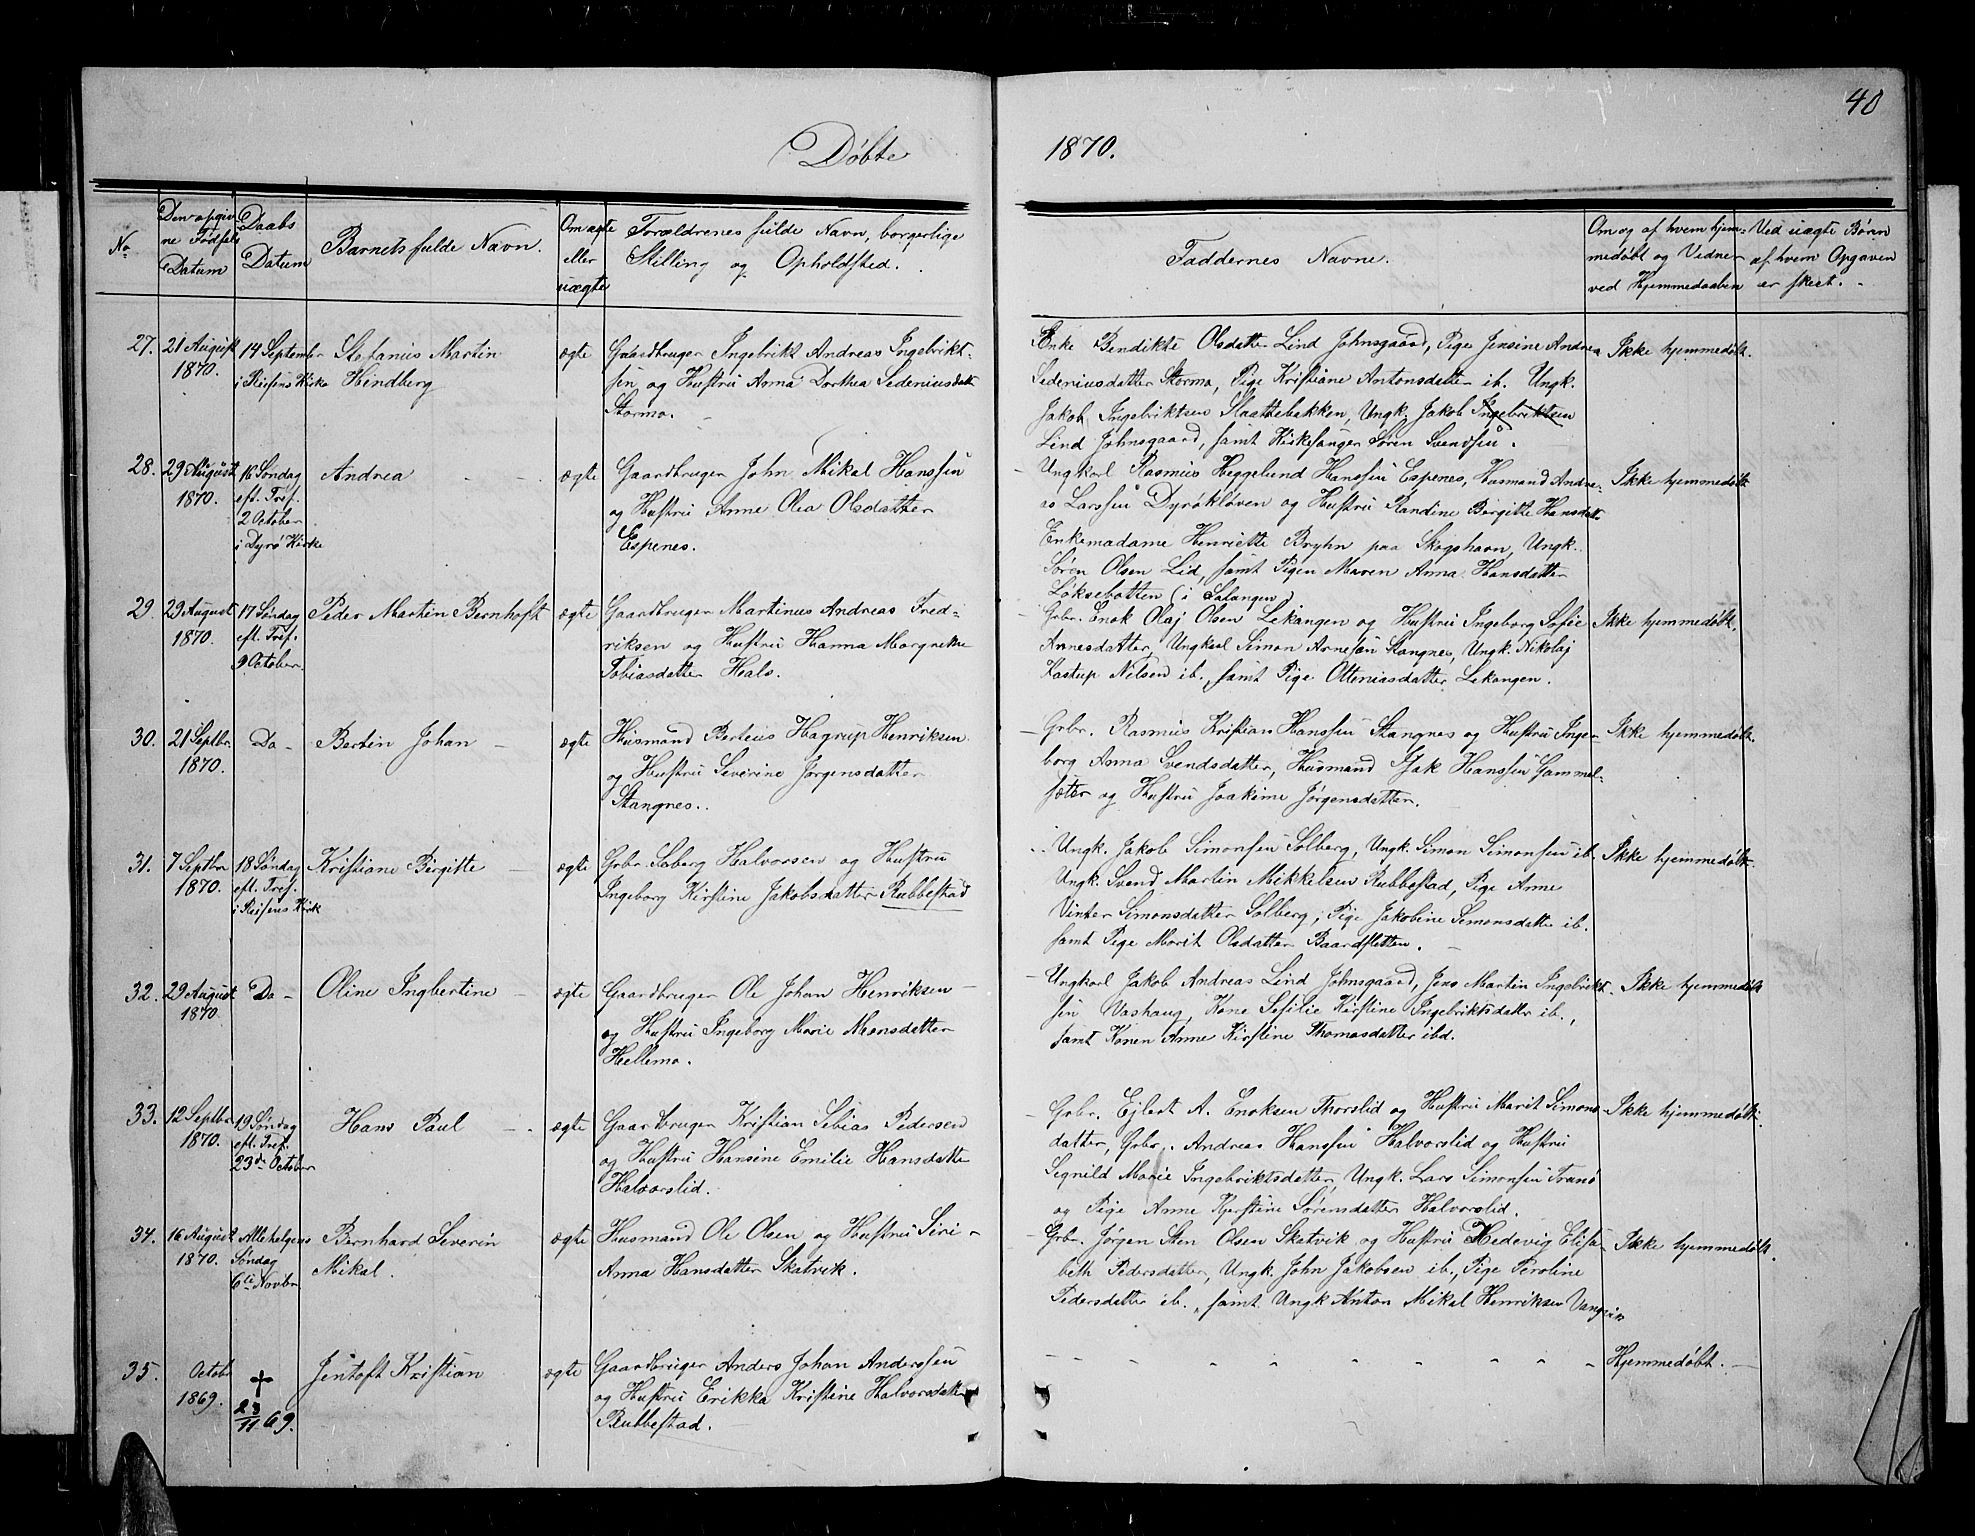 40
Døbte 1870.
No
Den opgiv
ne Fødsels
Datum
Daabs
Datum
Barnets fulde Navn.
Om ægte
eller
uægte
Forældrenes fulde Navn, borgerlige
Stilling og Opholdsted.
Faddernes Navne.
Om og af hvem hjem-
medøbt og Vidner
ved Hjemmedaaben
Ved uægte Børn
af hvem Opgaven
er skeet.
27.
21 August
1870.
14 September
i Reisens Kirke
Stefanus Martin
Hindberg
ægte
Gaardbruger Ingebrikt Andreas Ingebrikt-
sen og Hustru Anna Dorthea Sedeniusdatt
Stormo.
Enke Bendikte Olsdatter Lind Johnsgaard, Pige Jensine Andrea
Sedeniusdatter Stormo, Pige Kristiane Antonsdatter ib. Ungk.
Jakob Ingebriktsen Slaattebakken, Ungk. Jakob Ingebriktsen
Lind Johnsgaard, samt Kirkesanger Søren Svendsen.
Ikke hjemmedøbt.
28.
29 August
1870.
16 Søndag
eft. Tref.
2 October
i Dyrø Kirke
Andrea
ægte
Gaardbruger John Mikal Hanssen
og Hustru Anne Olea Olsdatter
Espenes.
Ungkarl Rasmus Heggelund Hanssen Espenes, Husmand Andre-
as Larssen Dyrøkløven og Hustru Randine Birgitte Hansdatt
Enkemadame Henriette Bryhn paa Skogshavn, Ungk.
Søren Olsen Lid, samt Pigen Maren Anna Hansdatter
Løksebotten (i Salangen)
Ikke hjemmedøbt
29.
29 August
1870.
17 Søndag
eft. Tref.
9 October
Peder Martin Bernhoft
ægte
Gaardbruger Martinus Andreas Fred-
riksen og Hustru Hanna Margrethe
Tobiasdatter Hals.
Grbr. Enok Olaj Olsen Lekangen og Hustru Ingeborg Sofie
Arnesdatter, Ungkarl Simon Arnesen Stangnes, Ungk. Nikolaj
Kastup Nilsen ib., samt Pige Otteniasdatter Lekangen.
Ikke hjemmedøbt.
30.
21 Septbr.
1870.
Do -
Bertin Johan
ægte
Husmand Berteus Hagrup Henriksen
og Hustru Severine Jørgensdatter
Stangnes.
Grbr. Rasmus Kristian Hanssen Stangnes og Hustru Inge-
borg Anna Svendsdatter, Husmand Isak Hanssen Gammel-
sæter og Hustru Joakime Jørgensdatter.
Ikke hjemmedøbt.
31.
7 Septbr
1870.
18 Søndag
eft. Tref.
i Reisens Kirk
Kristiane Birgitte
ægte
Grbr. Saberg Halvorsen og Hustru
Ingeborg Kirstine Jakobsdatter Rubbestad
Ungk. Jakob Simonsen Solberg, Ungk. Simon Simonsen ib.
Ungk. Svend Martin Mikkelsen Rubbestad, Pige Anne
Vinter Simonsdatter Solberg, Pige Jakobine Simonsdatte ib.
samt Pige Marit Olsdatter Baardsletten.
Ikke hjemmedøbt.
32.
29 August
1870.
Do -
Oline Ingbertine
ægte
Gaardbruger Ole Johan Henriksen
og Hustru Ingeborg Marie Monsdatter
Hellemo.
Ungkarl Jakob Andreas Lind Johnsgaard, Jens Martin Ingebrikt-
sen Vashaug, Kone Sefilie Kirstine Ingebriktsdatter ib.,
samt Konen Anne Kirstine Thomasdatter ibd.
Ikke hjemmedøbt
33.
12 Septbr.
1870.
19 Søndag
eft. Tref.
23de October
Hans Paul
ægte
Gaardbruger Kristian Tobias Pedersen
og Hustru Hansine Emilie Hansdatte
Halvorslid.
Grbr. Ejlert A. Enoksen Thorslid og Hustru Marit Simons-
datter, Grbr. Andreas Hanssen Halvorslid og Hustru
Segnild Marie Ingebriktsdatter, Ungk. Lars Simonsen Tranø
og Pige Anne Kjerstine Sørensdatter Halvorslid.
Ikke hjemmedøbt.
34.
16 August
1870.
Allehelgens
Søndag
6te Novbr
Bernhard Severin
Mikal.
ægte
Husmand Ole Olsen og Hustru Siri-
Anna Hansdatter Skatvik.
Grbr. Jørgen Sten Olsen Skatvik og Hustru Hedevig Elisa-
beth Pedersdatter, Ungk. John Jakobsen ib., Pige Peroline
Pedersdatter ib., samt Ungk Anton Mikal Henriksen Vangvik
Ikke hjemmedøbt.
35.
Octobr
1869.
†
23/11 69.
Jentoft Kristian
ægte
Gaardbruger Anders Johan Anderssen
og Hustru Erikka Kristine Halvorsdatter
Rubbestad.
Hjemmedøbt.